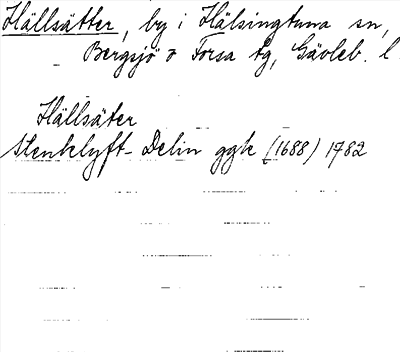 Hällsätter, by i Hälsingtuna sn,
Bergsjö o Forsa tg, Gävleb. l.
Hällsäter
Stenklyft- Delin ggk (1688) 1782